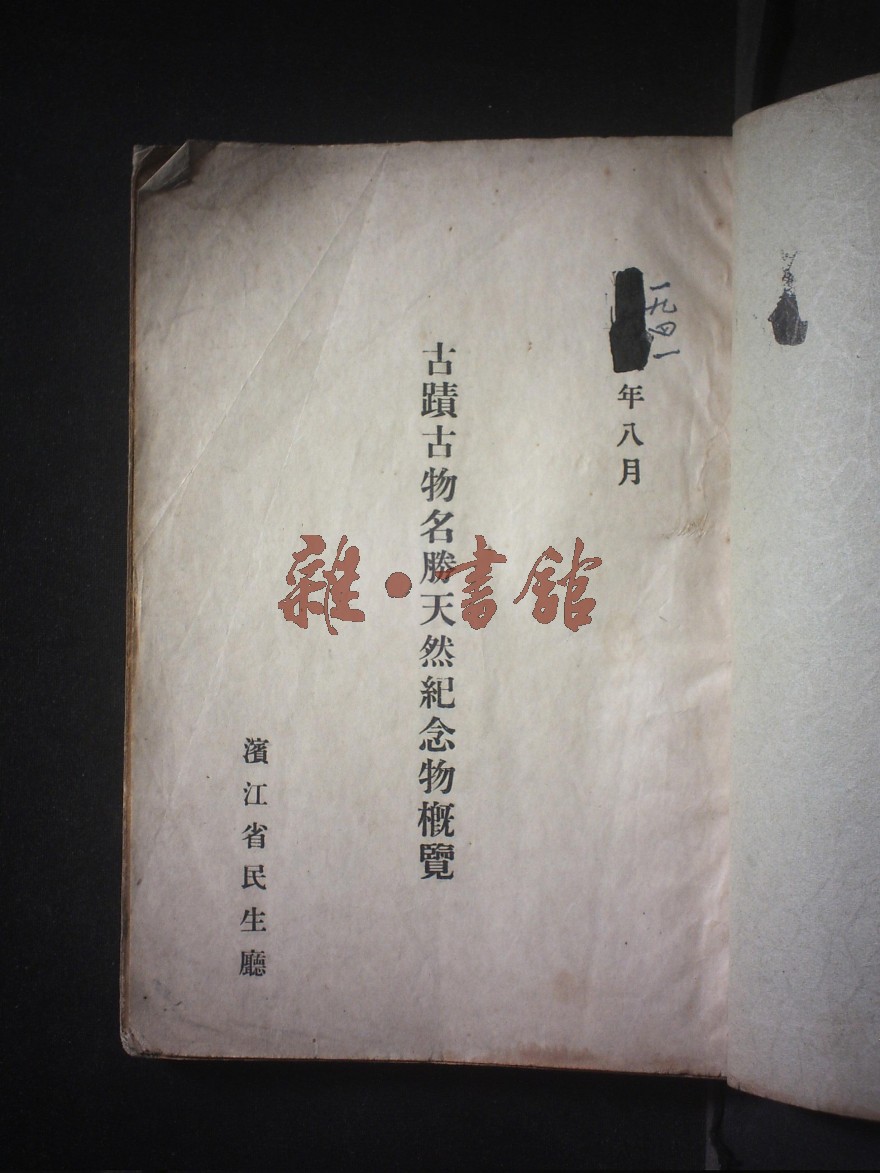 一九四一
年八月
古蹟古物名勝天然紀念物概覽
濱江省民生廳
雜·書館